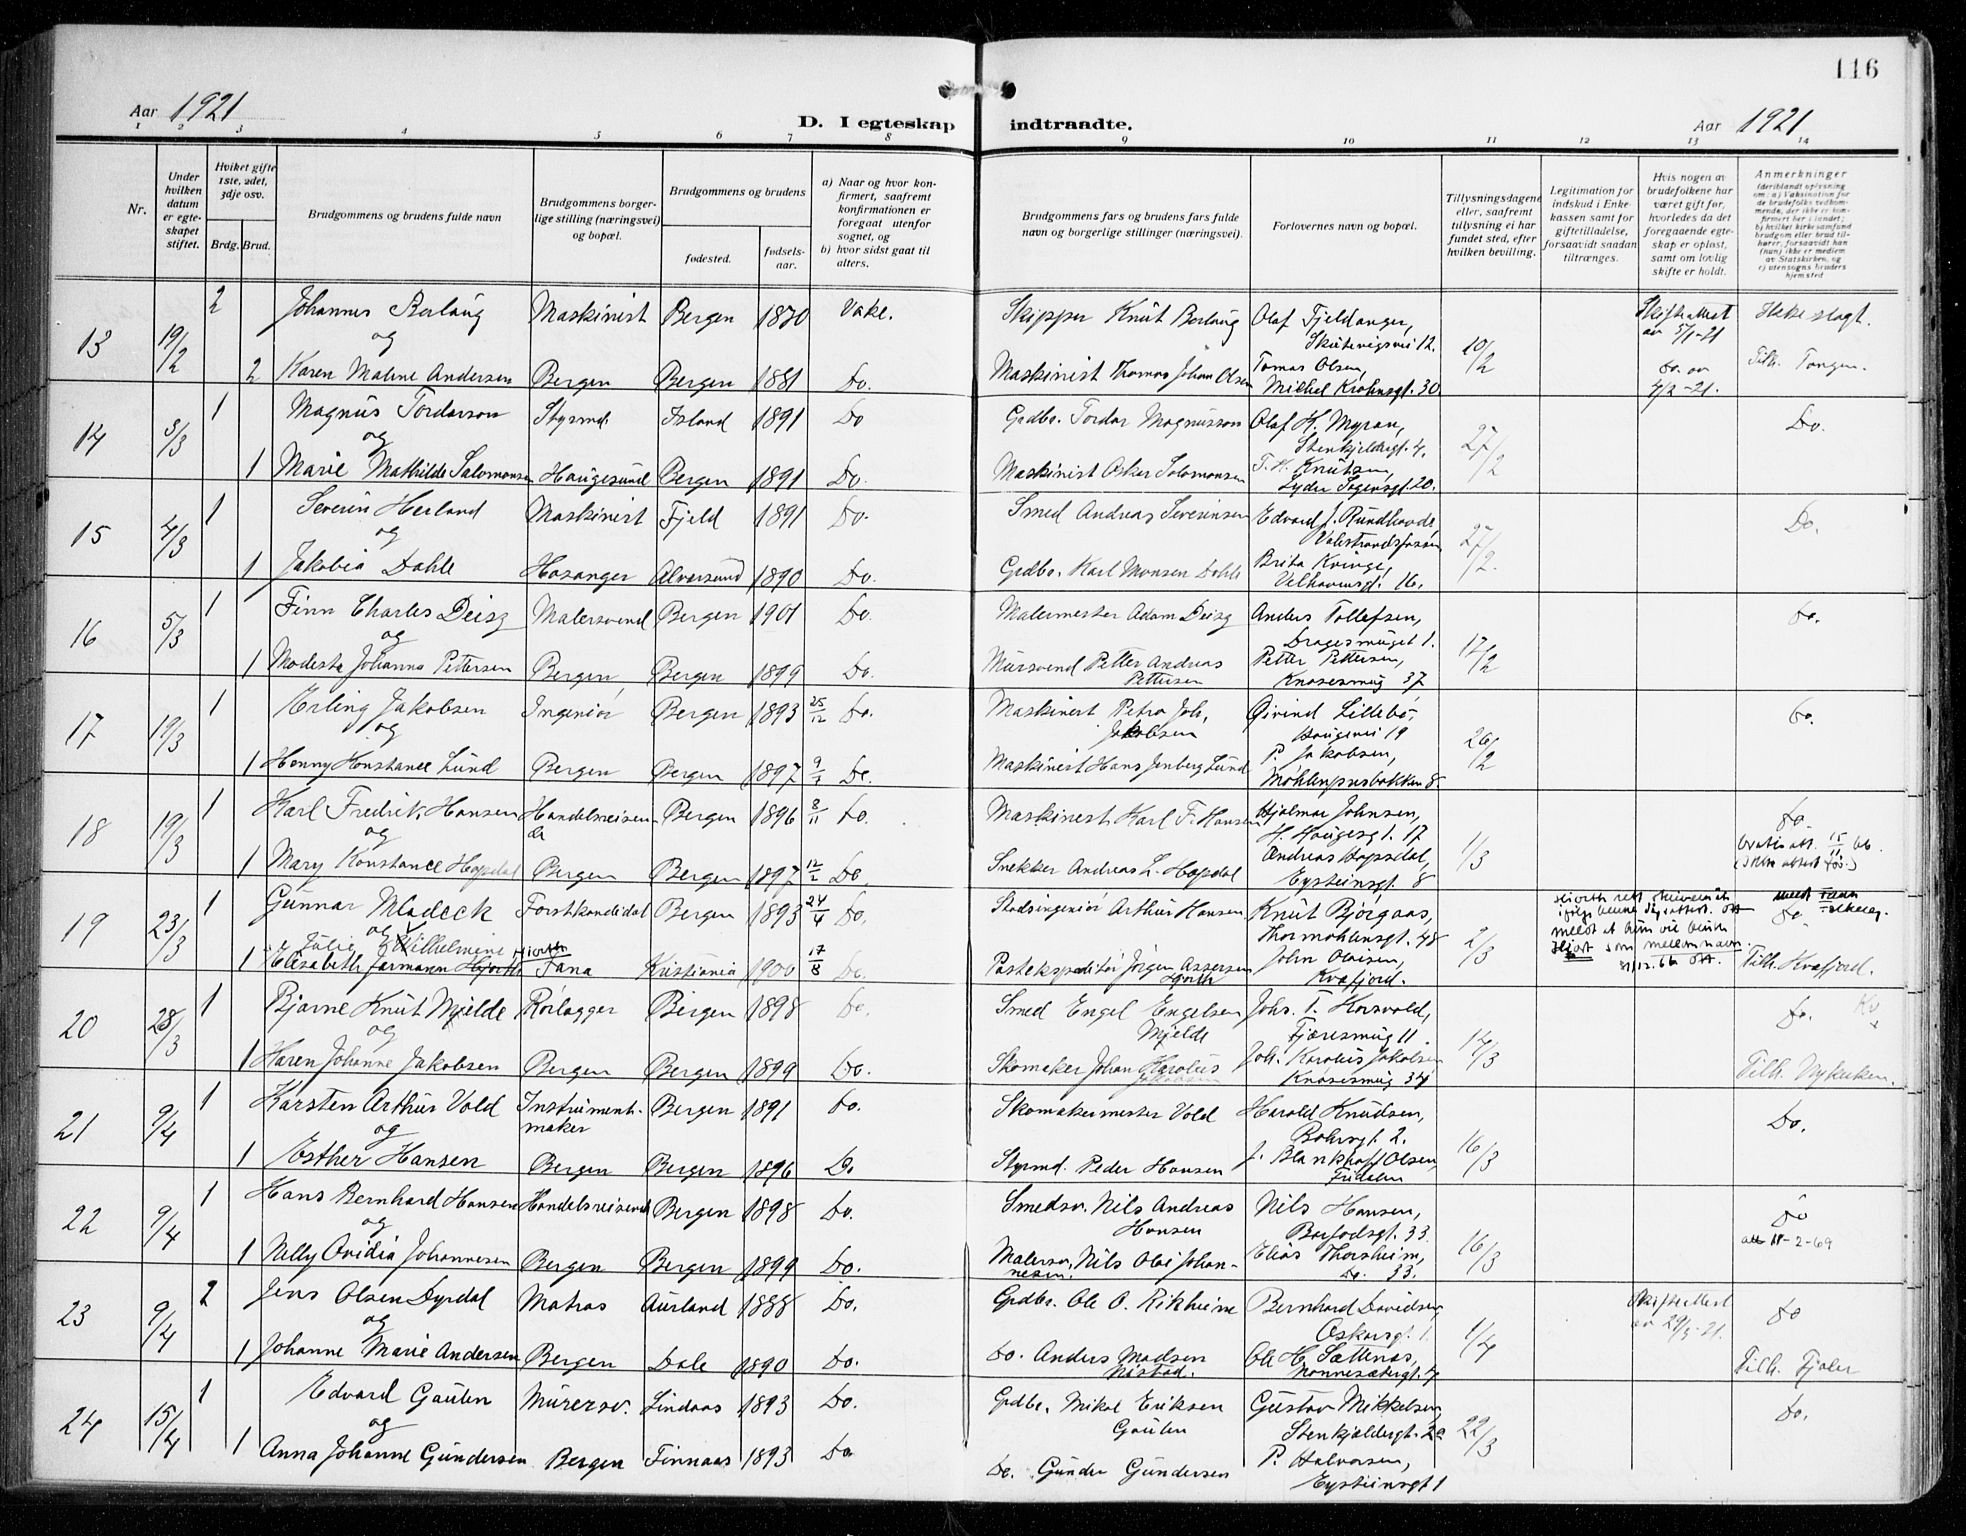 116
Aar 1921
D. I egteskap indtraadte.
Aar 1921
1 2 3 4 5 6 7 8 9 10 11 12 13 14
Nr.
Under hvilken datum er egteskapet stiftet.
Hvilket gifte 1ste, 2det, 3dje osv.
Brdg. Brud.
Brudgommens og brudens fulde navn
Brudgommens borgerlige stilling (næringsvei) og bopæl.
Brudgommens og brudens
fødested.
fødselsaar.
a) Naar og hvor konfirmert, saafremt konfirmationen er foregaat utenfor sognet, og
b) hvor sidst gaat til alters.
Brudgommens fars og brudens fars fulde navn og borgerlige stillinger (næringsvei).
Forlovernes navn og bopæl.
Tillysningsdagene eller, saafremt tillysning ei har fundet sted, efter hvilken bevilling.
Legitimation for indskud i Enkekassen samt for giftetilladelse, forsaavidt saadan tiltrænges.
Hvis nogen av brudefolkene har været gift før, hvorledes da det foregaaende egteskap er opløst, samt om lovlig skifte er holdt.
Anmerkninger (deriblandt oplysning om: a) Vaksination for de brudefolks vedkommende, der ikke er konfirmert her i landet; b) hvilket kirkesamfund brudgom eller brud tilhører, forsaavidt han (hun) ikke er medlem av Statskirken, og c) utensogns bruders hjemsted
13 19/2 2 Johannes Berlaug Maskinist Bergen 1870 Vake. Skipper Knut Berlaug Olaf Fjeldanger, Skutevigsvei 12. 10/2 Skifteattest av 5/1-21 Ikke slegt.
og
2 Karen Malene Andersen Bergen Bergen 1881 Do. Maskinist Thomas Johan Olsen Tomas Olsen, Michel Krohnsgt. 30 do. av 4/2-21. Tilh. Tangen.
14 3/3 1 Magnus Tordarson Styrmd. Island 1891 Do Grdbr. Tordar Magnusson Olaf H. Myran, Stenkjeldergt. 4. 27/2 Do.
og
1 Marie Mathilde Salomonsen Haugesund Bergen 1891 Do. Maskinist Oskar Salomonsen T. H. Knutsen, Lyder Sagensgt. 20.
15 4/3 1 Severin Herland Maskinist Fjeld 1891 Do. Smed Andreas Severinsen Edvard J. Rundhovde, Valestrandsfossen 27/2. Do.
og
1 Jakobia Dahle Hosanger Alversund 1890 Do. Grdbr. Karl Monsen Dahle Brita Kvinge, Velhavensgt. 16.
16 5/3 1 Finn Charles Deisz Malersvend Bergen 1901 Do. Malermester Adam Deisz Anders Tollefsen, Dragesmuget 1. 17/2 do.
og
1 Modesta Johanna Pettersen Bergen Bergen 1899 Do. Mursvend Petter Andreas Pettersen Petter Pettersen, Knøsesmug 37
17 19/3 1 Erling Jakobsen Ingeniør Bergen 1893 25/12 do. Maskinist Petro Joh. Jakobsen Øivind Lillebø, Haugevei 19 26/2 do.
og
1 Henny Konstance Lund Bergen Bergen 1897 Do. Maskinist Hans Jenberg Lund P. Jakobsen, Møhlenprisbakken 8.
18 19/3 1 Karl Fredrik Hansen Handelsreisende Bergen 1896 8/11 do. Maskinist Karl F. Hansen Hjalmar Johnsen, H. Haugesgt. 17 1/3 do.
og
1 Mary Konstance Hopsdal Bergen Bergen 1897 12/2 Do. Snekker Andreas L. Hopsdal Andreas Hopsdal, Eysteinsgt. 8 15/11 66.
19 23/3 1 Gunnar Mladeck Forstkandidat Bergen 1893 24/4 Do. Stadsingeniør Arthur Hansen Knut Bjørgaas, Thormøhlensgt. 48 2/3 do.
og Julie Wilhelmine
1 Elisabeth Jarmann Hjorth Fana Kristiania 1900 17/8 Do. Postekspeditør Jørgen Assersen Hjorth John Oloisen, Kvæfjord. 31/12.66 Tilh. Kvæfjord.
20 28/3 1 Bjarne Knut Mjelde Rørlægger Bergen 1898 Do. Smed Engel Engelsen Mjelde Johs. T. Horsvold, Fjæresmug 11. 14/3 do.
og
1 Karen Johanne Jakobsen Bergen Bergen 1899 Do. Skomaker Johan Karolius Jakobsen Joh. Karolius Jakobsen Knøsesmug 34 Tilh. Nykirken.
21 9/4 1 Karsten Arthur Vold Instrumentmaker Bergen 1891 do. Skomakermester Vold Herold Knudsen, Bøhrsgt. 2. 16/3 Do.
og
1 Esther Hansen Bergen Bergen 1896 Do Styrmd. Peder Hansen J. Blankhoff Olsen, Fridalen
22 9/4 1 Hans Bernhard Hansen Handelsreisende Bergen 1898 Do. Smedsv. Nils Andreas Hansen Nils Hansen, Barfodsgt. 33. 16/3 do
og att 11-2-69
1 Nelly Ovidia Johannesen Bergen Bergen 1899 Do. Malersv. Nils Olai Johannesen. Elias Thorsheim, Do. 33.
23 9/4 2 Jens Olsen Dyrdal Matros Aurland 1888 Do. Grdbr. Ole O. Rikheim Bernhard Davidsen, Oskarsgt. 1. 1/4 Skifteattest av 29/3-21. do
og
1 Johanne Marie Andersen Bergen Dale 1890 Do. do. Anders Madsen Nistad. Ole H. Sættenes, Nonnesætergt. 7 Tilh. Fjaler
24 15/4 1 Edvard Gaulen Murersv. Lindaas 1893 Do. Grdbr. Mikal Eriksen Gaulen Gustav Mikkelsen, Stenkjældergt. 2a 22/3 Do.
og
1 Anna Johanne Gundersen Bergen Finnaas 1893 Do do. Gunder Gundersen P. Halvorsen, Eysteinsgt 1